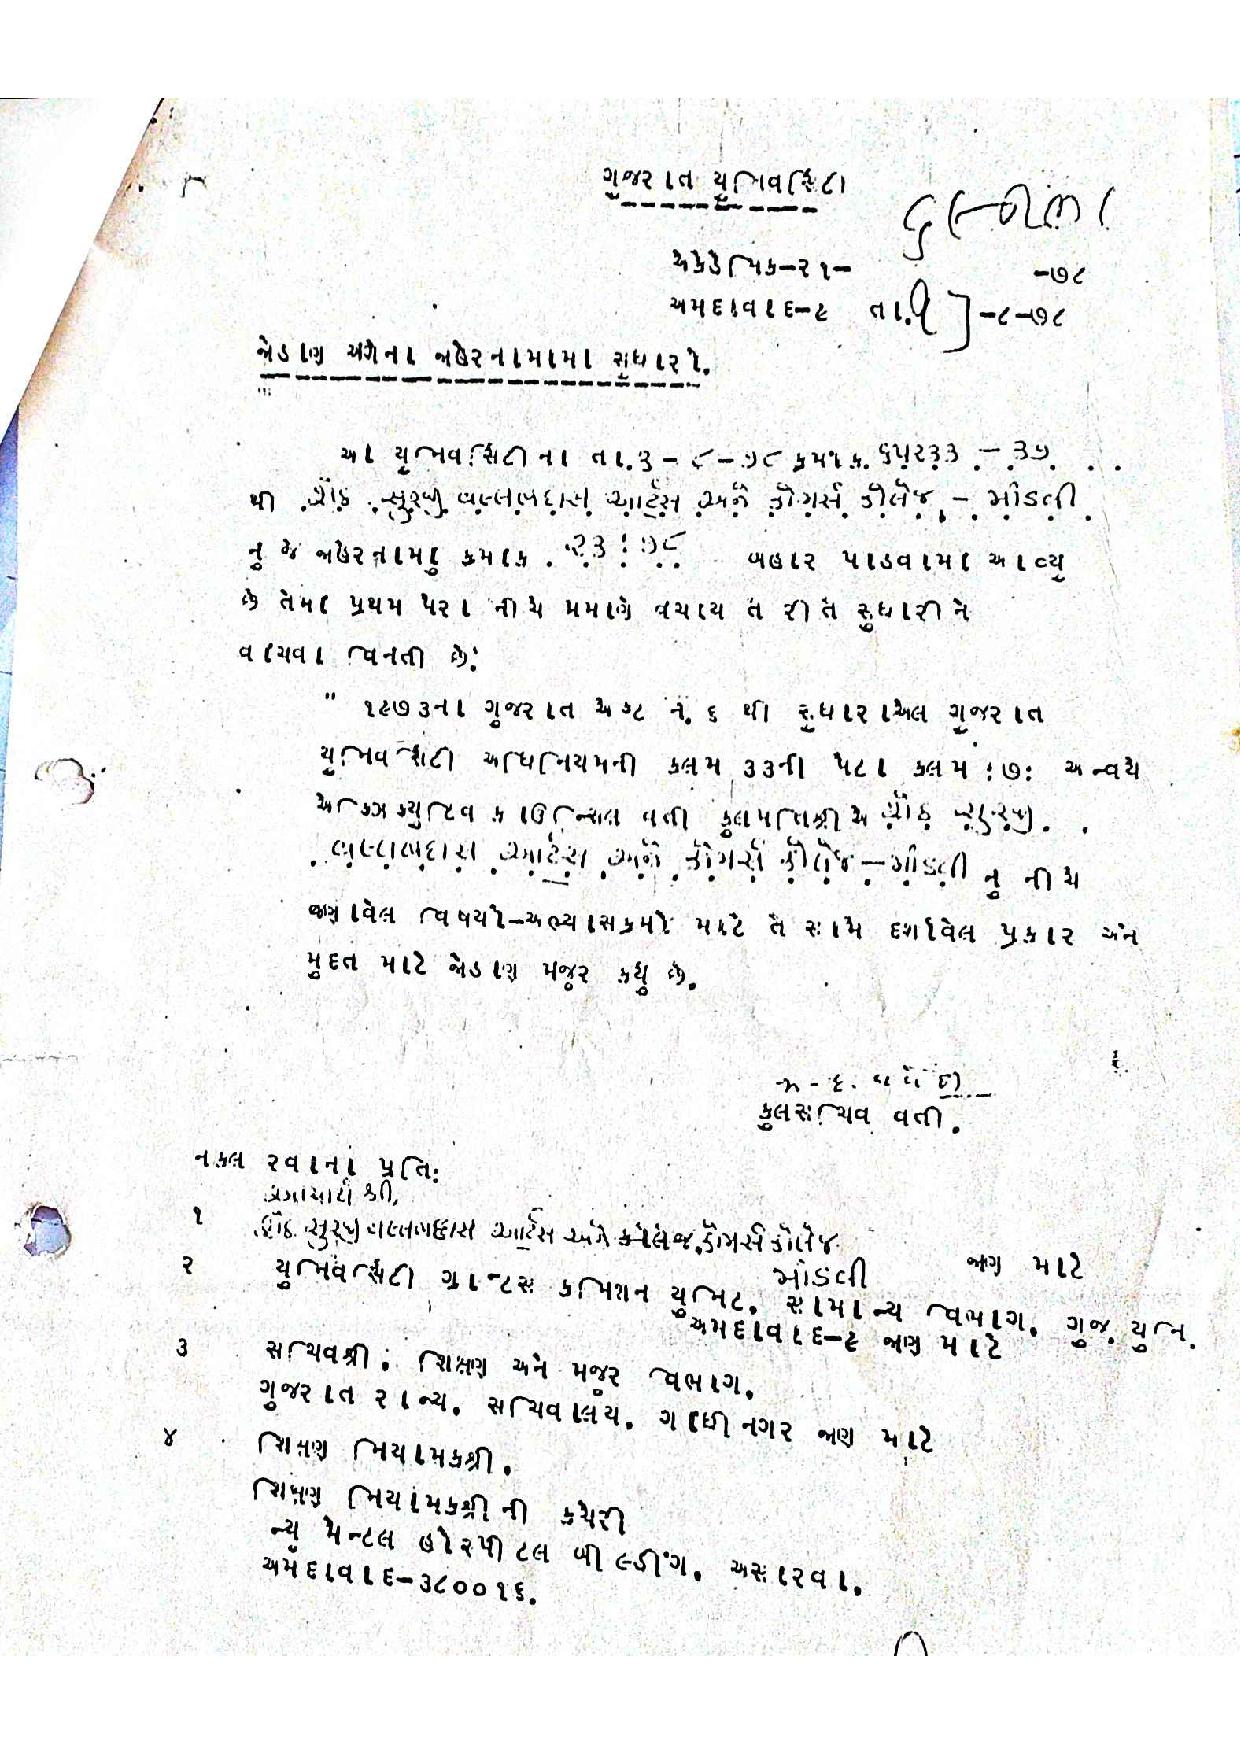 ગુજરાત યુનિવર્સિટી
એકેડેમિક-૨૧- -૭૮
અમદાવાદ-૯ તા. -૮-૭૮
જોડાણ અંગેના જાહેરનામામાં સુધારો.
આ યુનિવર્સિટીના તા.૩-૮-૭૮ ક્રમાંક. ૬૫૨૩૩ - ૩૭
થી શેઠ સુરજી વલ્લભદાસ આર્ટ્સ અને કોમર્સ કોલેજ, - માંડવી
નું જે જાહેરનામું ક્રમાંક . ૨૩:૭૮ બહાર પાડવામાં આવ્યું
છે તેમાં પ્રથમ પેરા નીચે પ્રમાણે વંચાય તે રીતે સુધારીને
વાંચવા વિનંતી છે:
" ૧૯૭૩ના ગુજરાત એક્ટ નં. ૬ થી સુધારાએલ ગુજરાત
યુનિવર્સિટી અધિનિયમની કલમ ૩૩ની પેટા કલમ :૭: અન્વયે
એક્ઝિક્યુટિવ કાઉન્સિલ વતી કુલપતિશ્રીએ શેઠ સુરજી
વલ્લભદાસ આર્ટ્સ અને કોમર્સ કોલેજ - માંડવી નું નીચે
જણાવેલ વિષયો-અભ્યાસક્રમો માટે તે સામે દર્શાવેલ પ્રકાર અને
મુદત માટે જોડાણ મંજુર કર્યું છે.
કુલસચિવ વતી.
નકલ રવાના પ્રતિ:
આચાર્યશ્રી,
૧ શેઠ સુરજી વલ્લભદાસ આર્ટ્સ અને કોલેજ, કોમર્સ કોલેજ
માંડવી જાણ માટે
૨ યુનિવર્સિટી ગ્રાન્ટસ કમિશન યુનિટ. સામાન્ય વિભાગ. ગુજ. યુનિ.
અમદાવાદ-૯ જાણ માટે
૩ સચિવશ્રી. શિક્ષણ અને મજુર વિભાગ.
ગુજરાત રાજ્ય. સચિવાલય. ગાંધીનગર જાણ માટે
૪ શિક્ષણ નિયામકશ્રી.
શિક્ષણ નિયામકશ્રીની કચેરી
ન્યુ મેન્ટલ હોસ્પીટલ બીલ્ડીંગ. અસારવા.
અમદાવાદ-૩૮૦૦૧૬.